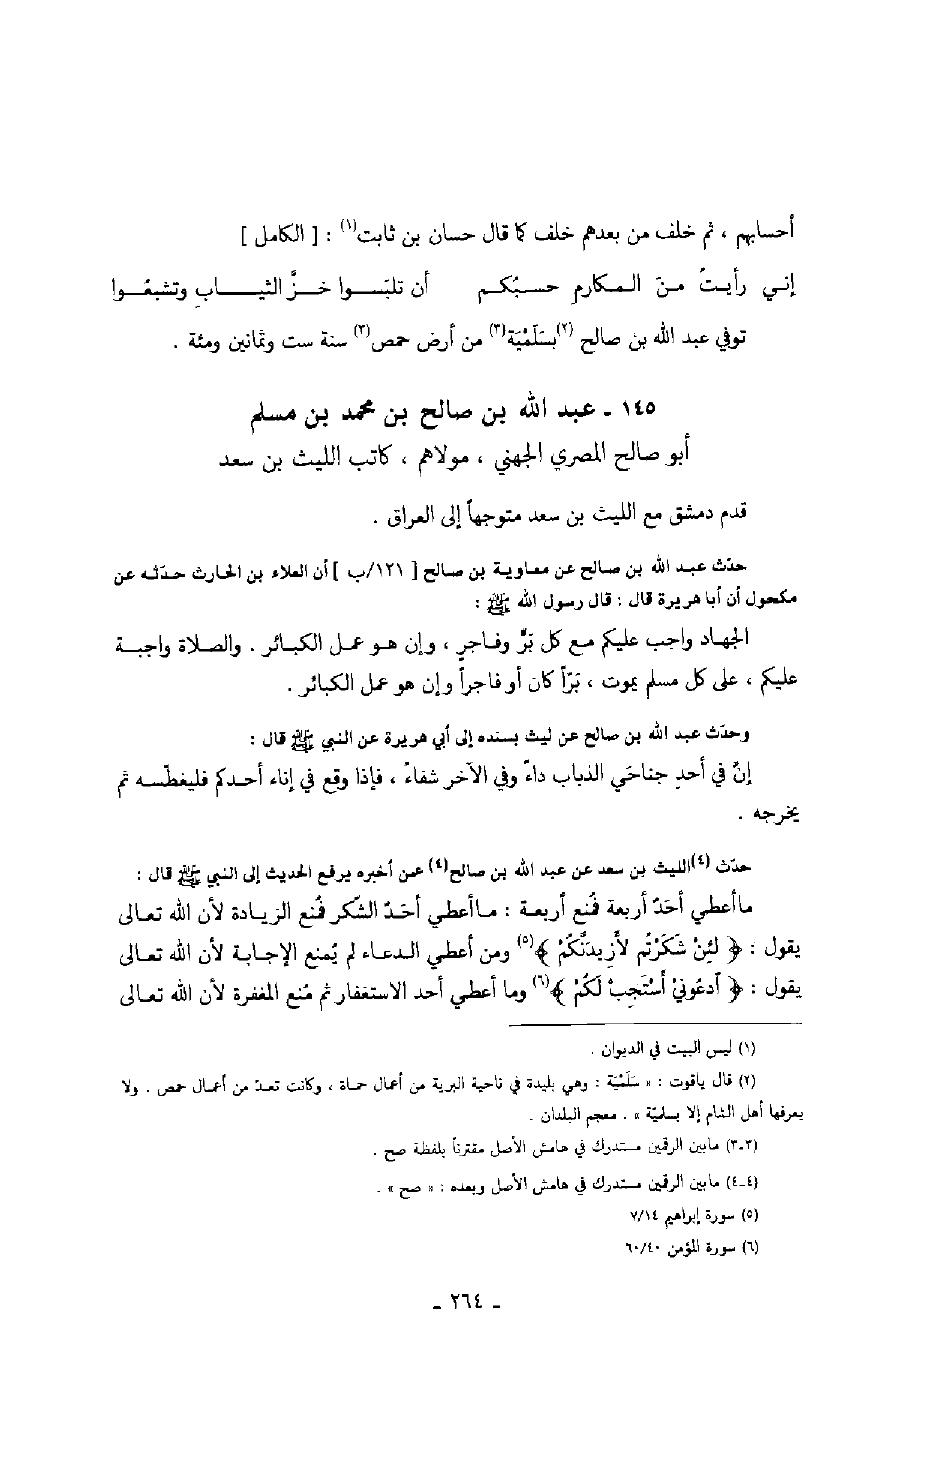 أحسابهم ، ثم خلف من بعدهم خلف كما قال حسان بن ثابت(١) : [ الكامل ]
إني رأيتُ منَ المكارم حسبُكم أن تلبَسوا خزَّ الثيابِ وتشبعُوا
توفي عبد الله بن صالح (٢)بسَلَمْيَة(٣) من أرض حمص(٣) سنة ست وثمانين ومئة .
١٤٥ ـ عبد الله بن صالح بن محمد بن مسلم
أبو صالح المصري الجهني ، مولاهم ، كاتب الليث بن سعد
قدم دمشق مع الليث بن سعد متوجهاً إلى العراق .
حدّث عبد الله بن صالح عن معاوية بن صالح [ ١٢١/ب ] أن العلاء بن الحارث حدّثه عن
مكحول أن أبا هريرة قال : قال رسول الله ﷺ :
الجهاد واجب عليكم مع كل بَرٍّ وفاجرٍ ، وإن هو عمل الكبائر . والصلاة واجبة
عليكم ، على كل مسلم يموت ، بَرّاً كان أو فاجراً وإن هو عمل الكبائر .
وحدّث عبد الله بن صالح عن ليث بسنده إلى أبي هريرة عن النبي ﷺ قال :
إنّ في أحدِ جناحَي الذباب داءً وفي الآخر شفاءً ، فإذا وقع في إناء أحدكم فليغطّسه ثم
يخرجه .
حدّث (٤)الليث بن سعد عن عبد الله بن صالح(٤) عمن أخبره يرفع الحديث إلى النبي ﷺ قال :
ماأعطي أحَدٌ أربعة فمُنع أربعة : ماأعطي أحَدٌ الشكر فمُنع الزيادة لأن الله تعالى
يقول : ﴿ لَئِنْ شَكَرْتُم لأَزِيدَنَّكُمْ ﴾(٥) ومن أعطي الدعاء لم يُمنع الإجابة لأن الله تعالى
يقول : ﴿ اَدعُونيْ أَسْتَجِبْ لَكُمْ ﴾(٦) وما أعطي أحد الاستغفار ثم مُنع المغفرة لأن الله تعالى
(١) ليس البيت في الديوان .
(٢) قال ياقوت : « سَلَمْيَة : وهي بليدة في ناحية البرية من أعمال حماة ، وكانت تعدّ من أعمال حمص . ولا
يعرفها أهل الشام إلا بسلميّة » . معجم البلدان .
(٣-٣) مابين الرقمين مستدرك في هامش الأصل مقترناً بلفظة صح .
(٤-٤) مابين الرقمين مستدرك في هامش الأصل وبعده : « صح » .
(٥) سورة إبراهيم ٧/١٤
(٦) سورة المؤمن ٦٠/٤٠
ـ ٢٦٤ ـ